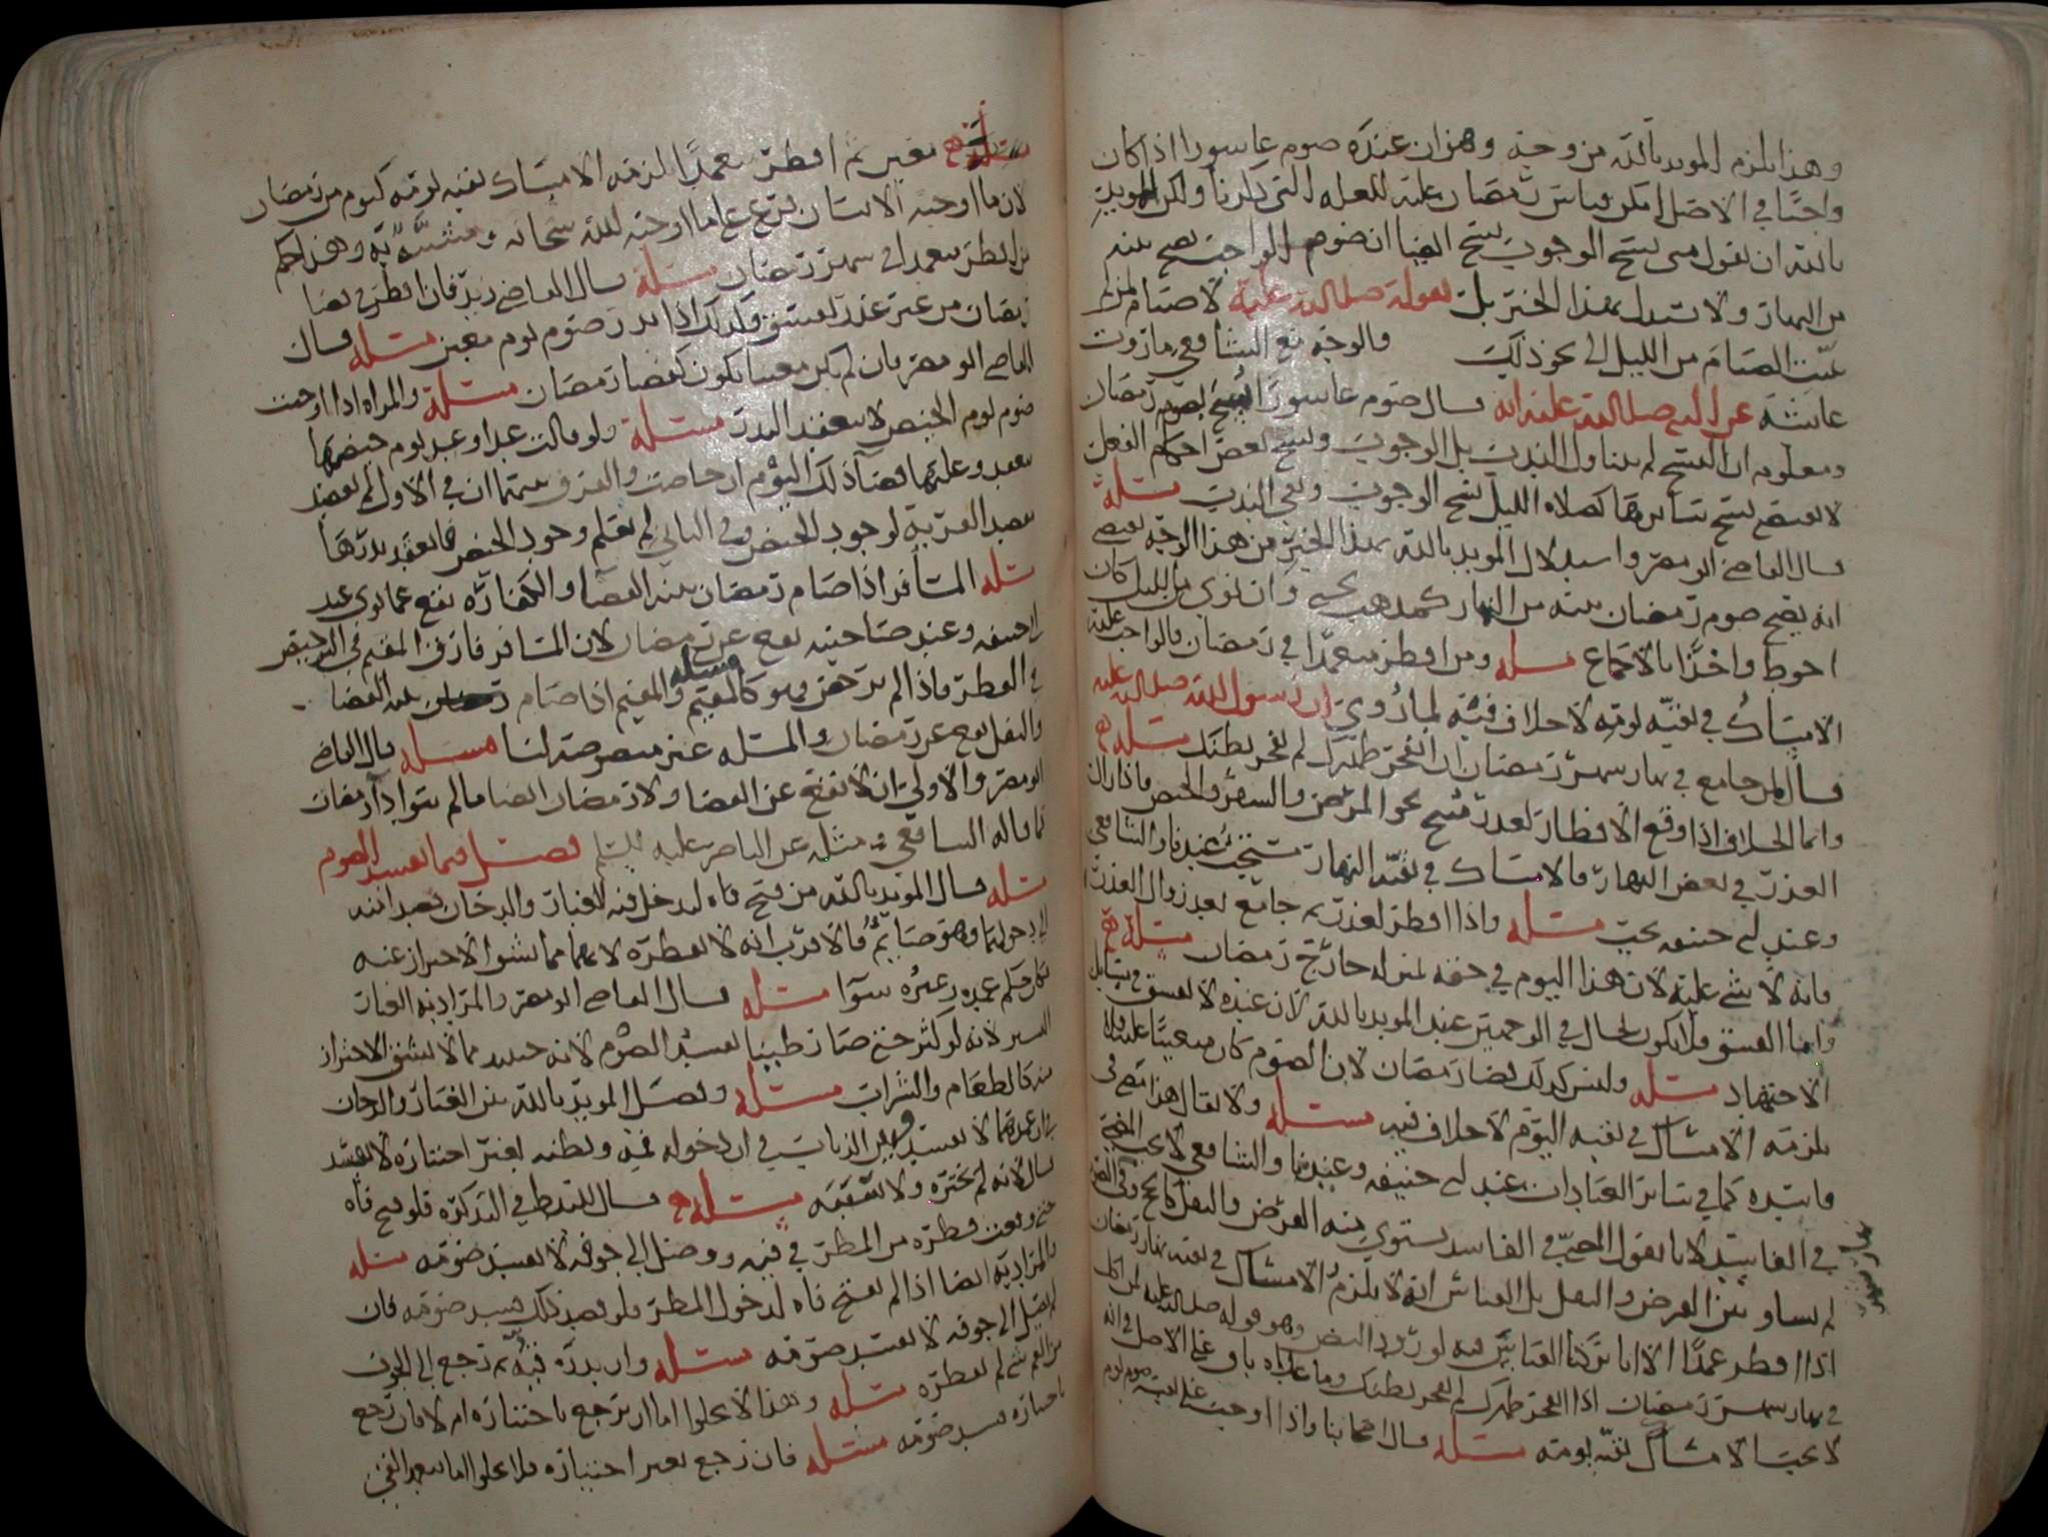 وهذا يلزم المويد بالله من وجه وهو ان عنده صوم عاسورا اذا كان
واجبا في الاصل امكن قياس رمضان عليه للعله التي ذكرنا ولكن للمويد
بالله ان يقول متى نسخ الوجوب نسخ ايضا ان صوم الواجب يصح بنيه
من النهار ولا نسدل بهذا الخبر بل بقوله صلى الله عليه لا صيام لمن لم
يبيت الصيام من الليل الى نحو ذلك والوجه مع الشافعي ما روت
عايشه عن النبي صلى الله عليه انه قال صوم عاسورا نسخ بصوم رمضان
ومعلوم ان النسخ لم يتناول الندب بل الوجوب ونسخ بعض احكام الفعل
لا يقتضي نسخ سايرها كصلاه الليل نسخ الوجوب وبقي الندب مسله
قال القاضي ابو مضر واسدلال المويد بالله بهذا الخبر من هذا الوجه يقتضي
انه يصح صوم رمضان بنيه من النهار كمذهب يحيى وان نوى من الليل كان
احوط واخذا بالاجماع مسله ومن افطر متعمدا في رمضان فالواجب عليه
الامساك في بقيه يومه لا خلاف فيه لما روي ان رسول الله صلى الله عليه
قال لمن جامع في نهار شهر رمضان ان انفجر ظهرك لم يفجر بطنك مسله
وانما الخلاف اذا وقع الافطار لعذر مبيح نحو المرض والسفر والحيض فاذا زال
العذر في بعض النهار فالامساك في بقيه النهار مستحب عندنا والشافعي
وعند ابي حنيفه يجب مسله واذا افطر لعذر ثم جامع بعد زوال العذر
فانه لا شي عليه لان هذا اليوم في حقه بمنزله خارج رمضان مسله
واما الفسق فلا يكون الحال في الوجهين عند المويد بالله لان عنده لا يفسق في مسايل
الاجتهاد مسله وليس كذلك قضا رمضان لان الصوم كان متعينا عليه فلا
يلزمه الامساك في بقيه اليوم لا خلاف فيه مسله ولا يقال هذا مضى في
فاسده كما في ساير العبادات عند ابي حنيفه وعندنا والشافعي لا يجب المضي
في الفاسد لانا نقول المضي في الفاسد يستوي فيه الفرض والنفل كالحج وفي
لم يساو بين الفرض والنفل بل القياس انه لا يلزم الامساك في بقيه نهار رمضان
اذا افطر عمدا الا انا تركنا القياس فيه لورود النص وهو قوله صلى الله عليه لمن اكل
في نهار شهر رمضان اذا انفجر ظهرك لم يفجر بطنك وما عداه باق على الاصل في انه
لا يجب الامساك بقيه يومه مسله قال اصحابنا واذا اوجب على نفسه صوم يوم
مسله معين ثم افطر متعمدا لزمه الامساك بقيه يومه كيوم من رمضان
لان ما اوجبه الانسان فرع على ما اوجبه الله سبحانه ومشبه به وهذا حكم
من افطر متعمدا في شهر رمضان مسله قال القاضي زيد فان افطر في قضا
رمضان من غير عذر لم يفسق وكذلك اذا نذر صوم يوم معين مسله قال
القاضي ابو مضر فان لم يكن معينا يكون كقضا رمضان مسله والمراه اذا اوجبت
صوم يوم الحيض لا ينعقد النذر مسله ولو قالت غدا وغد يوم حيضها
ينعقد وعليها قضا ذلك اليوم ان حاضت والفرق بينهما ان في الاول لم يقصد
بقصد القربه لوجود الحيض وفي الثاني لم يعلم وجود الحيض فانعقد نذرها
مسله المسافر اذا صام رمضان بنيه القضا والكفاره يقع عما نوى عند
ابي حنيفه وعند صاحبيه يقع عن رمضان لان المسافر فارق المقيم في الترخيص
في الفطر فاذا لم يرخص فهو كالمقيم مسله والمقيم اذا صام رمضان بنيه القضا
والنفل يقع عن رمضان والمسله غير منصوصه لنا مسله قال القاضي
ابو مضر والاولى ان لا يقع عن القضا ولا رمضان ايضا ما لم ينو اداء رمضان
كما قاله الشافعي ومثله عن الناصر عليه السلم فصل فيما يفسد الصوم
مسله قال المويد بالله من فتح فاه ليدخل فيه الغبار والدخان بعد انه
الى دخولهما وهو صايم فالاقرب انه لا يفطره لانهما مما يشق الاحتراز عنه
فكان حكم عمده وغيره سوا مسله قال القاضي ابو مضر والمراد به الغبار
اليسير لانه لو كثر حتى صار طينا يفسد الصوم لانه حينيذ مما لا يشق الاحتراز
منه كالطعام والشراب مسله وفصل المويد بالله بين الغبار والدخان
بان عمدهما لا يفسد وبين الذباب في ان دخوله فمه وبطنه بغير اختياره لا يفسد
قال لانه لم يختره ولا سببه مسله قال في التذكره فلو فتح فاه
حتى وقعت قطره من المطر في فيه ووصل الى جوفه لا يفسد صومه مسله
والمراد به ايضا اذا لم يفتح فاه لدخول المطر فلو قصد ذلك فسد صومه فان
لم يصل الى جوفه لا يفسد صومه مسله وان بدره فيه ثم رجع الى الجوف
من القي شي لم يفطره مسله وهذا لا يخلوا اما ان يرجع باختياره ام لا فان رجع
باختياره فسد صومه مسله فان رجع بغير اختياره فلا يخلوا اما تعمد القي